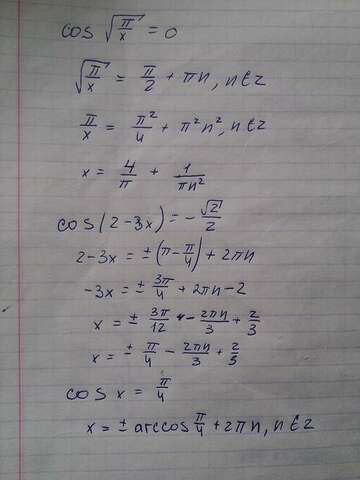 cos √(π/x) = 0
√(π/x) = π/2 + πn, n∈z
π/x = π²/4 + π²n², n∈z
x = 4/π + 1/(πn²)
cos(2-3x) = -√2/2
2-3x = ±(π-π/4) + 2πn
-3x = ± 3π/4 + 2πn-2
x = ± 3π/12 - 2πn/3 + 2/3
x = ± π/4 - 2πn/3 + 2/3
cos x = π/4
x = ± arccos π/4 + 2πn, n∈z